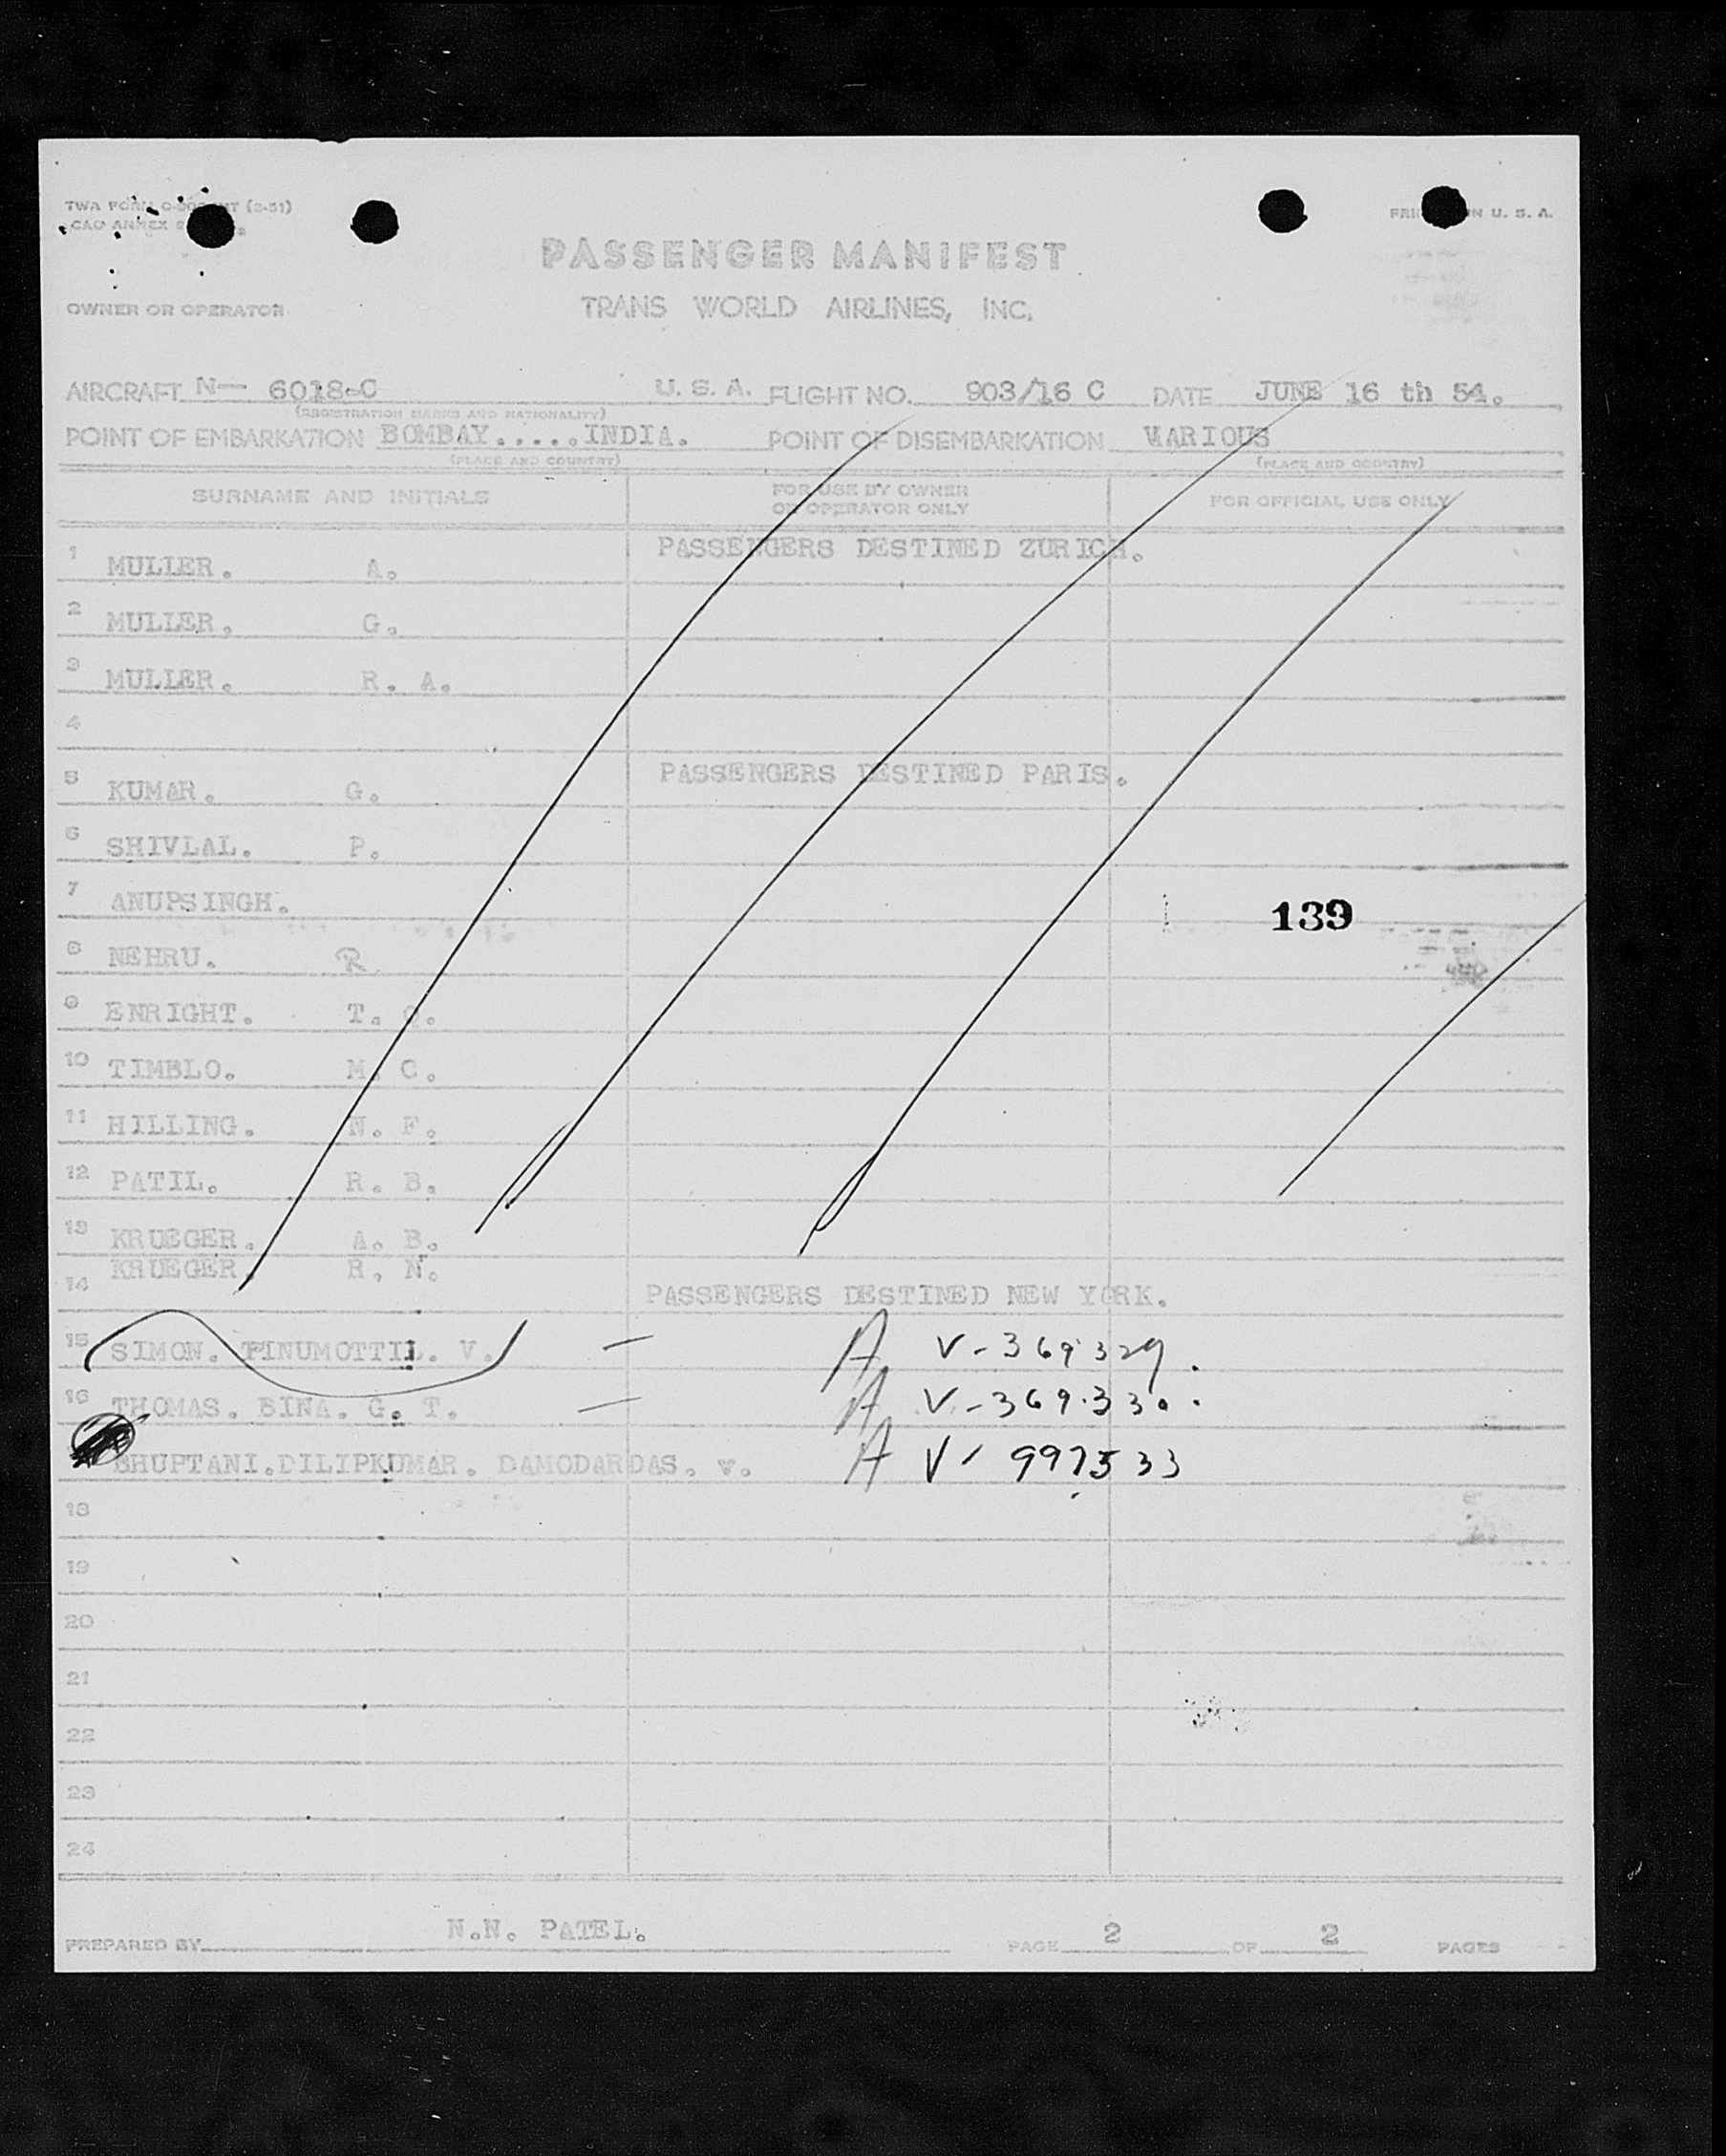 TWA FORM (2-51)
PRINTED IN U. S. A.
ICAO ANNEX
PASSENGER MANIFEST
OWNER OR OPERATOR TRANS WORLD AIRLINES, INC.
AIRCRAFT N— 6018-C U. S. A. FLIGHT NO. 903/16 C DATE JUNE 16 th 54.
(REGISTRATION MARKS AND NATIONALITY)
POINT OF EMBARKATION BOMBAY.....INDIA. POINT OF DISEMBARKATION VARIOUS
(PLACE AND COUNTRY) (PLACE AND COUNTRY)
SURNAME AND INITIALS FOR USE BY OWNER OR OPERATOR ONLY FOR OFFICIAL USE ONLY
PASSENGERS DESTINED ZURICH.
1 MULLER. A.
2 MULLER. G.
3 MULLER. R. A.
4
PASSENGERS DESTINED PARIS.
5 KUMAR. G.
6 SHIVLAL. P.
7 ANUPSINGH. 139
8 NEHRU. R
9 ENRIGHT. T.
10 TIMBLO. M. C.
11 HILLING. N. F.
12 PATIL. R. B.
13 KRUEGER. A. B.
KRUEGER. R. N.
14 PASSENGERS DESTINED NEW YORK.
15 SIMON. PINUMOTTIL. V. — A V-369329.
16 THOMAS. BINA. G. T. — A V-369.330.
BHUPTANI.DILIPKUMAR. DAMODARDAS. v. A V- 997533
18
19
20
21
22
23
24
PREPARED BY N.N. PATEL. PAGE 2 OF 2 PAGES